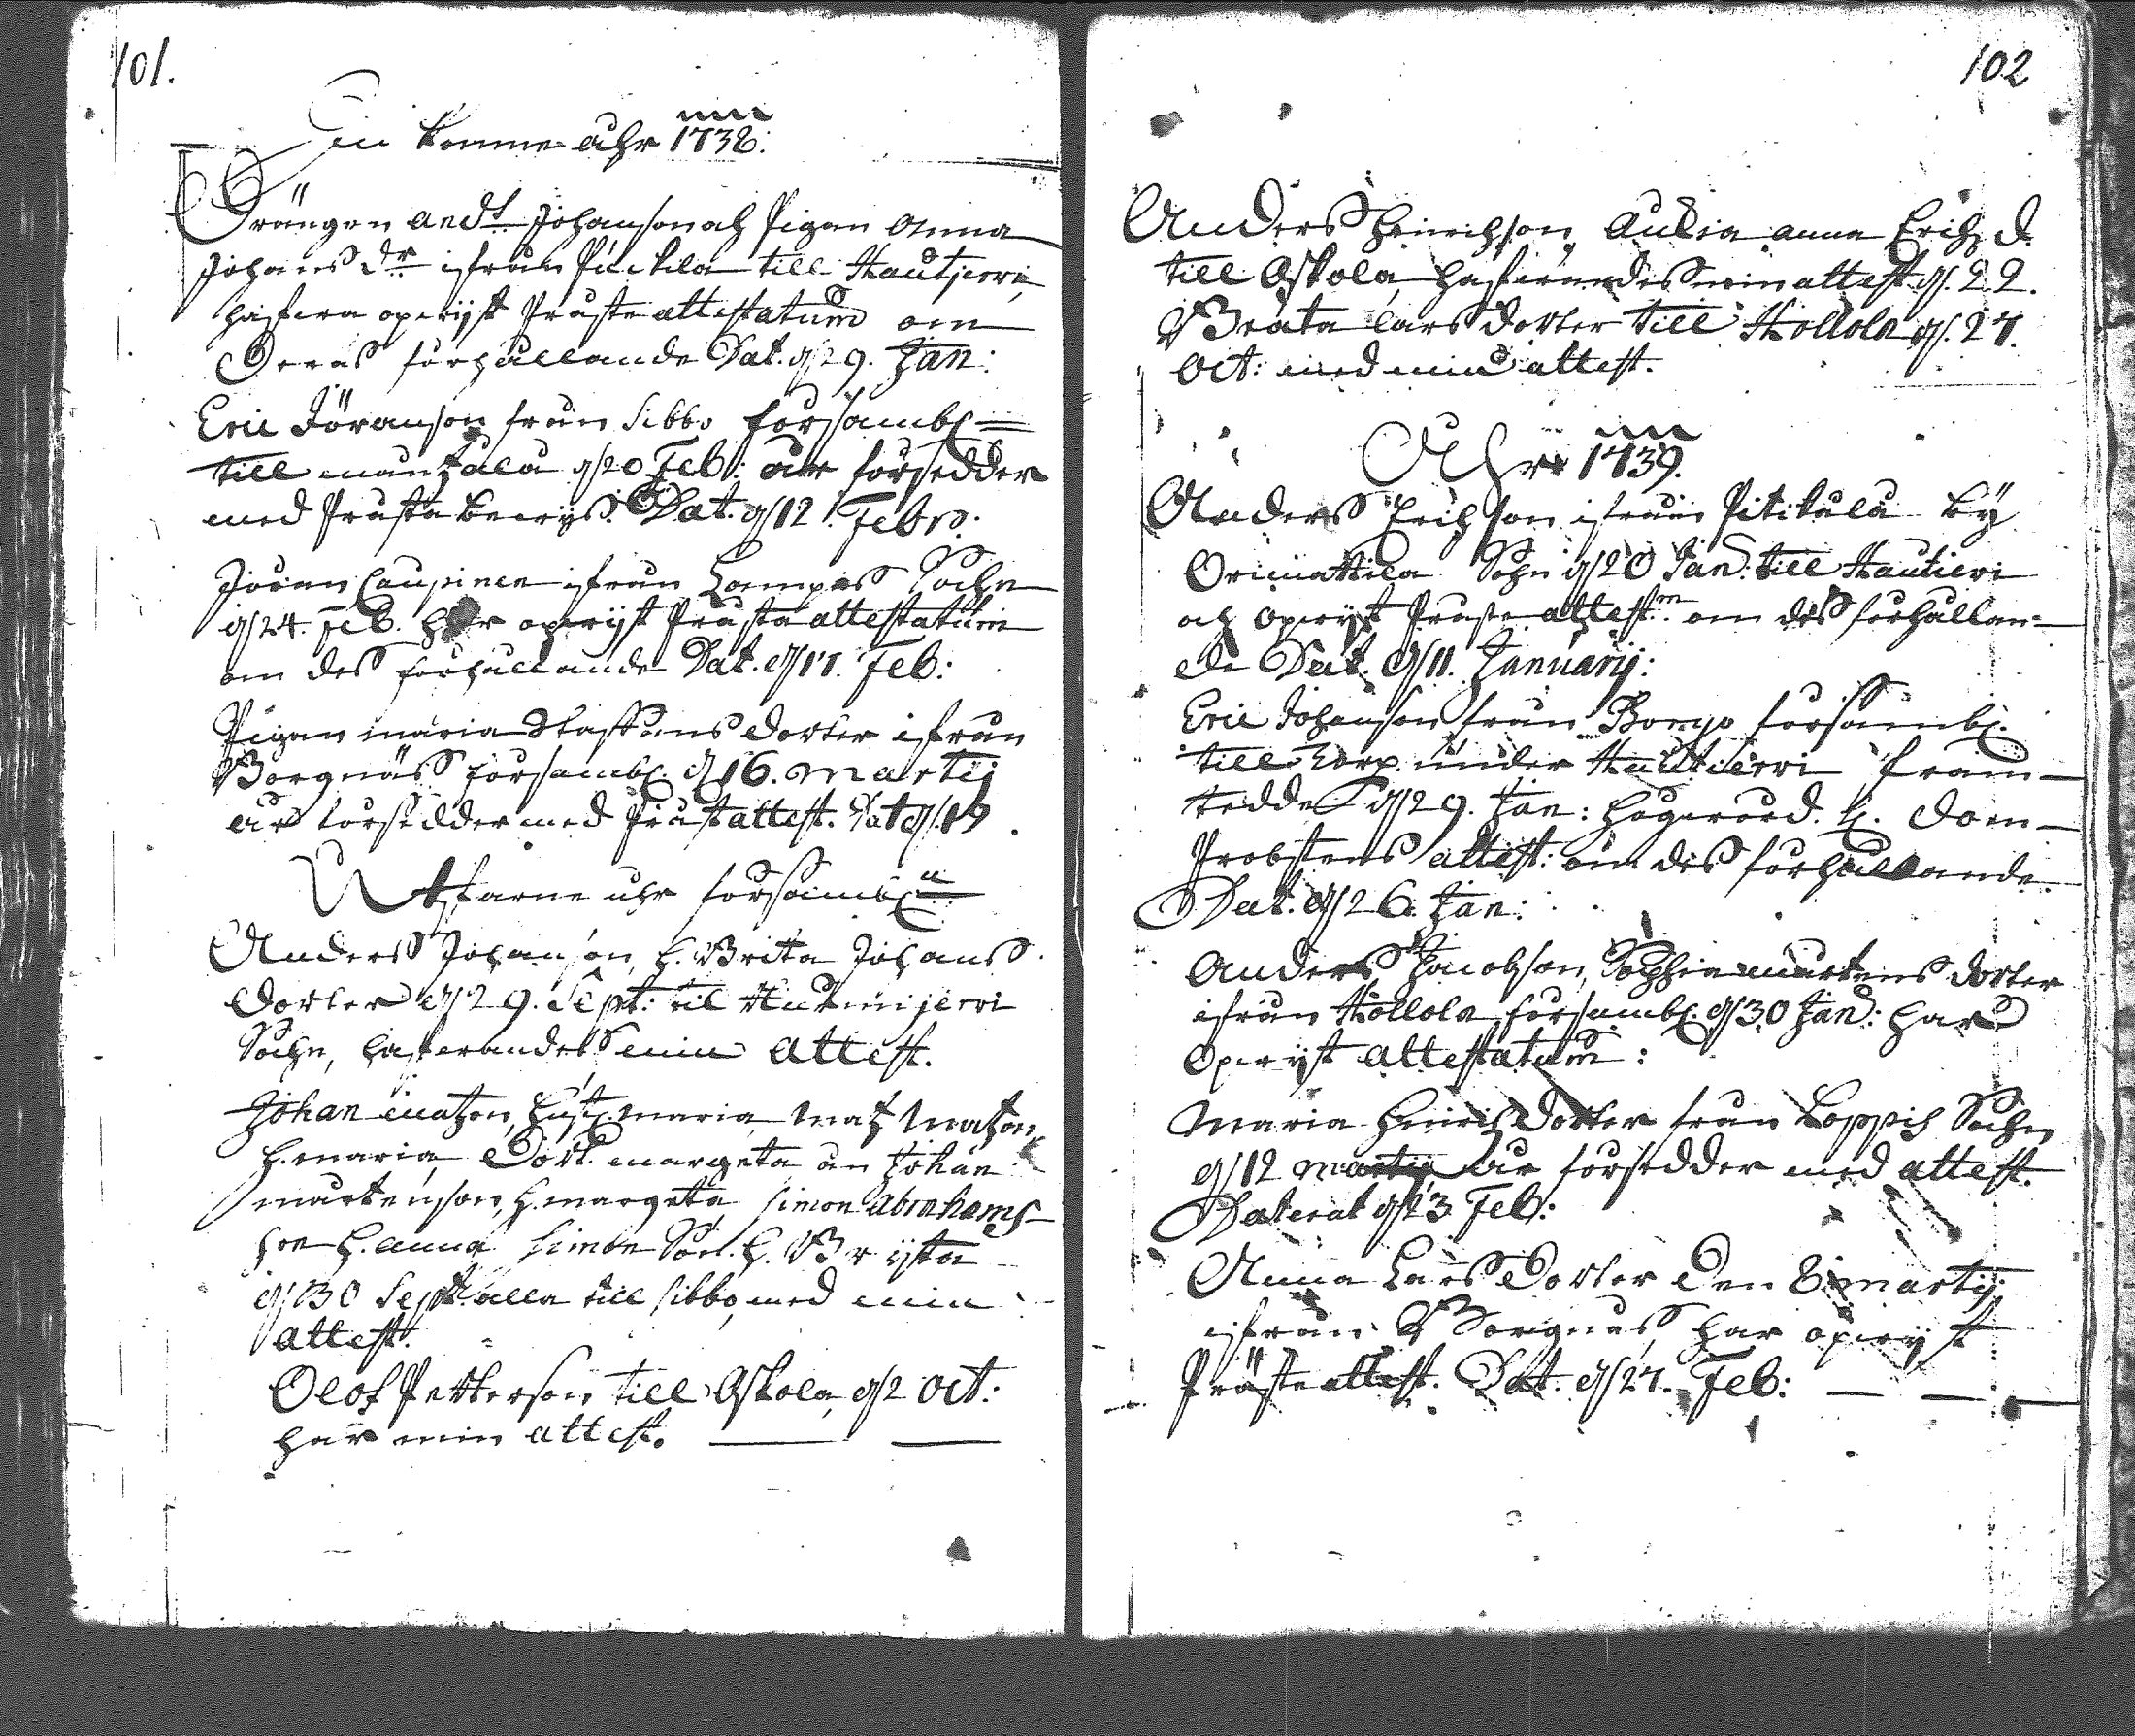 101.
In komne åhr 1738:
Drängen And: Johanson och Pigan Anna
Johans Dr ifrån Puckila till Hautjervi,
hafva opvijst Präste attestatum om
Deras förhållande Dat. d. 29. Jan:
Eric Jöranson från Sibbo försambl:
till Mäntzälä d. 20 Feb: är försedder
med Prästa bevijs. Dat. d. 12. Febr:
Jöran Caupinen ifrån Lampis Sochn
d. 24. Feb. har opvijst Prästa attestatum
om des förhållande Dat. d. 17. Feb:
Pigan Maria Staffans dotter ifrån
Borgnäs försambl. d. 16. Martij
är försedder med Präst attest. Dat. d. 12.
Utfarne uhr försambln
Anders Johanson, h. Brita Johans
dotter d. 29. Sept: til Nurmijervi
Sochn, hafvandes min attest.
Johan Matzon, Hust. Maria Matz Matzon
h. Maria Dott. Margeta än Johan
Mårtenson, h. Margeta Simon Abrahams
son h. Anna Simon Son. h. Brijta
d. 30 Sept. alla till Sibbo, med min
attest.
Olof Petterson till Askola, d. 2 Oct:
har min attest.
102
Anders Heinrichson Anna Erichs d.
till Askola, hafvandes min attest d. 22.
Beata Lars dotter till Hollola d. 27.
Oct: med min attest.
Åhr 1739.
Anders Erichson ifrån Pitikälä by
Orimattila Sochn d. 20 Jan: till Hautiervi
och opvijst Präste attestm om des förhållan-
de Dat. d. 11. Januarij:
Eric Johanson från Borgo försambl.
till torp under Hautiervi fram-
tedde d. 29. Jan: Högvörd. H. Dom-
Probstens attest: om des förhållande.
Dat. d. 26. Jan:
Anders Jacobson, Sophia Mårtens dotter
ifrån Hollola försambl. d. 30 Jan: har
opvijst attestatum:
Maria Heinrichs dotter från Loppis Sochn
d. 12 Martij är försedder med attest.
Daterat d. 13 Feb:
Anna Lars Dotter Den 8 Martij
ifrån Borgnäs, har opvijst
Präste attest. Dat. d. 27. Feb: